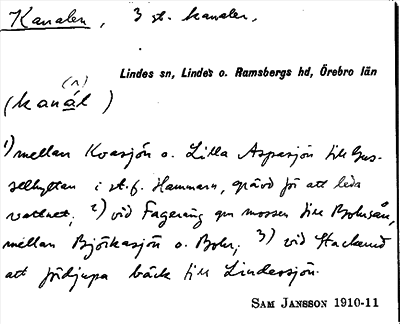 Kanalen, 3 st. kanaler,
Lindes sn, Lindes o. Ramsbergs hd, Örebro län
(n)
(kanál)
1) mellan Kvasjön o. Lilla Aspasjön till Gus-
selhyttan i st. f. Hammarn, grävd för att leda
vattnet; 2) vid Fageräng gm mossen till Bohrsån,
mellan Björkasjön o. Bohr; 3) vid
att fördjupa bäck till Lindessjön.
SAM JANSSON 1910-11